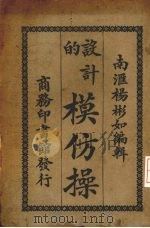 南滙楊彬如編輯
設計的
模仿操
商務印書館發行